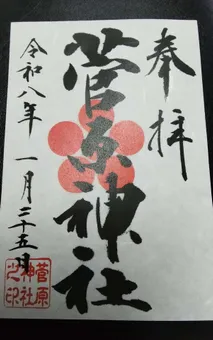 奉拝
菅原神社
令和八年 一月二十五日
菅原
神社
之印